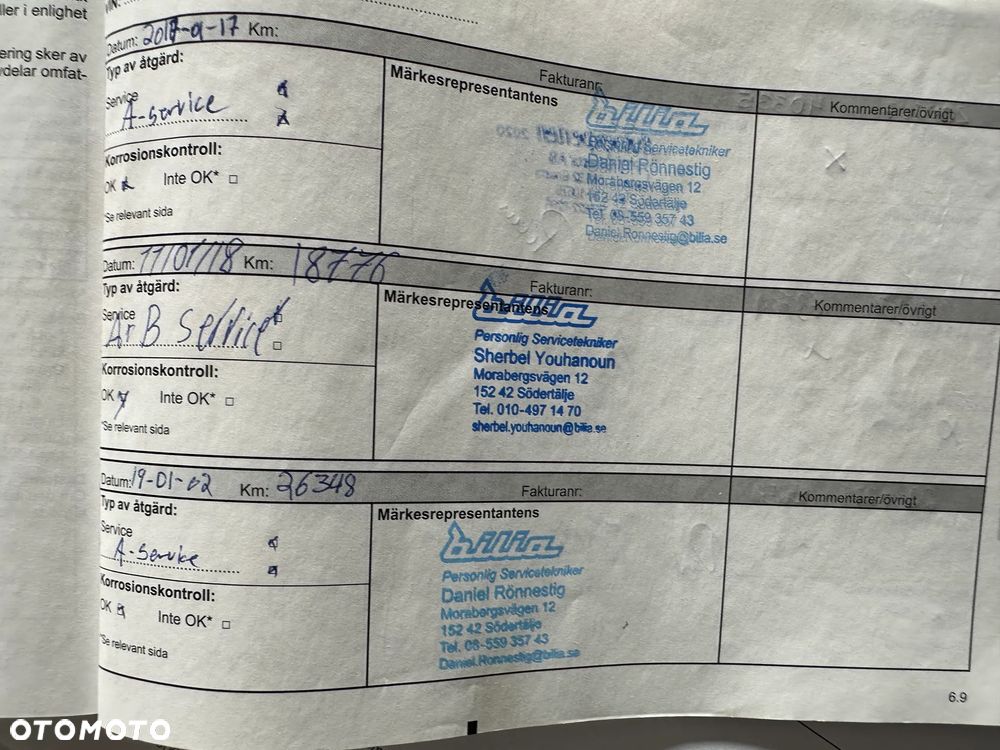 ller i enlighet
ering sker av
delar omfat-
VIN:
Datum: 2017-01-17 Km:
Typ av åtgärd:
Service
A-service
Korrosionskontroll:
OK Inte OK*
*Se relevant sida
Fakturanr:
Märkesrepresentantens
bilia
Personlig Servicetekniker
Daniel Rönnestig
Morabergsvägen 12
152 42 Södertälje
Tel. 08-559 357 43
Daniel.Ronnestig@bilia.se
Kommentarer/övrigt
Datum: 17/01/18 Km: 18776
Typ av åtgärd:
Service
B Service
Korrosionskontroll:
OK Inte OK*
*Se relevant sida
Fakturanr:
Märkesrepresentantens
bilia
Personlig Servicetekniker
Sherbel Youhanoun
Morabergsvägen 12
152 42 Södertälje
Tel. 010-497 14 70
sherbel.youhanoun@bilia.se
Kommentarer/övrigt
Datum: 19-01-02 Km: 26348
Typ av åtgärd:
Service
A-service
Korrosionskontroll:
OK Inte OK*
*Se relevant sida
Fakturanr:
Märkesrepresentantens
bilia
Personlig Servicetekniker
Daniel Rönnestig
Morabergsvägen 12
152 42 Södertälje
Tel. 08-559 357 43
Daniel.Ronnestig@bilia.se
Kommentarer/övrigt
6.9
OTOMOTO